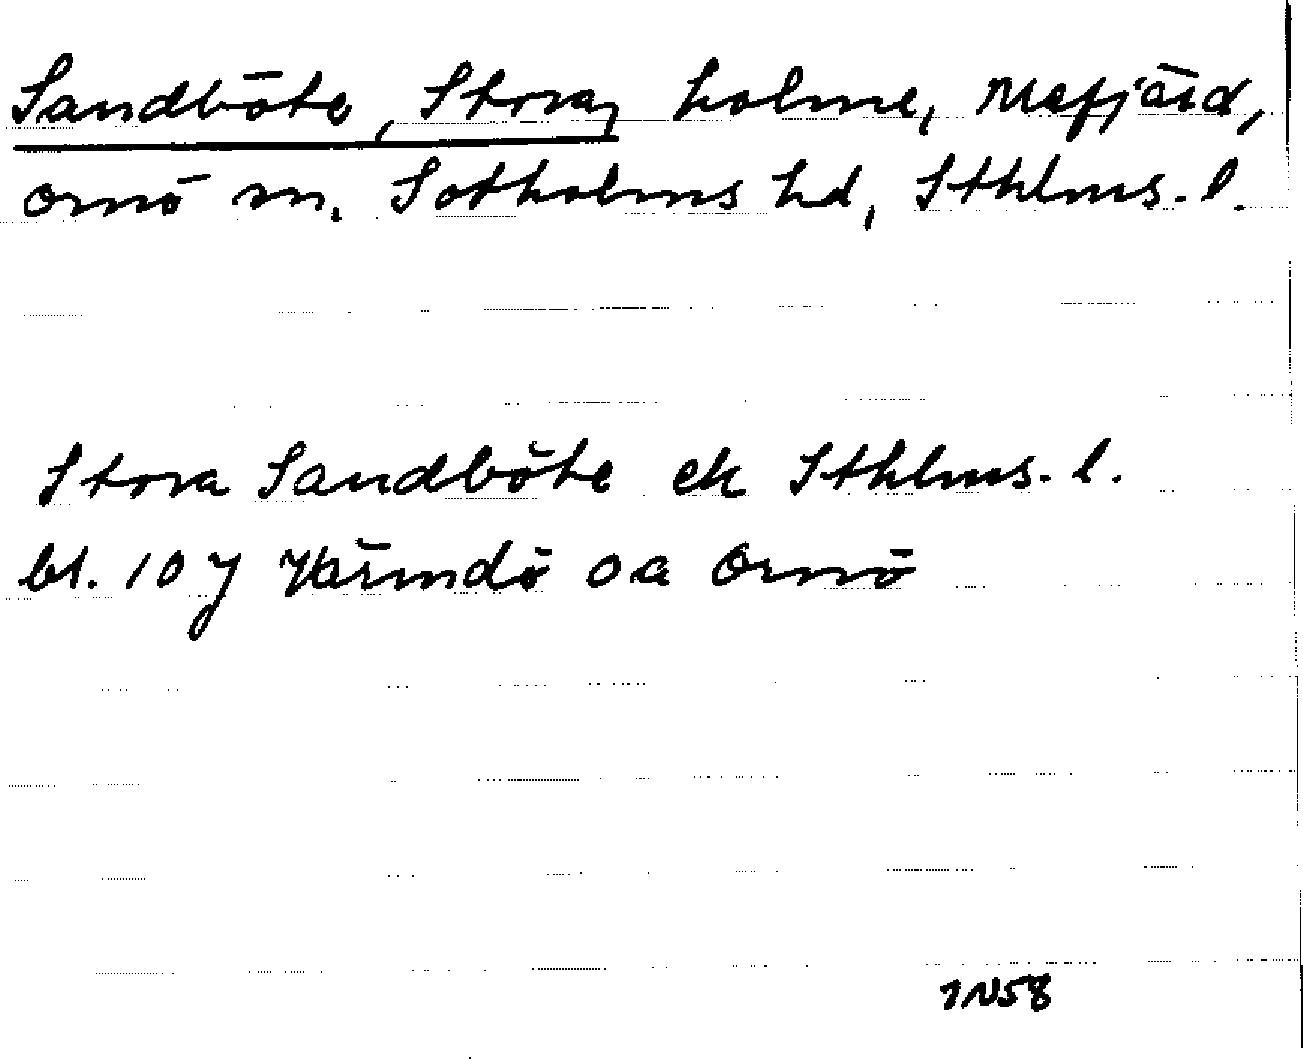 Sandböte, Stora, holme, Mefjärd,
Ornö sn. Sotholms hd, Sthlms. l.
Stora Sandböte ek Sthlms. l.
bl. 10 y Värmdö oa Ornö
IN58